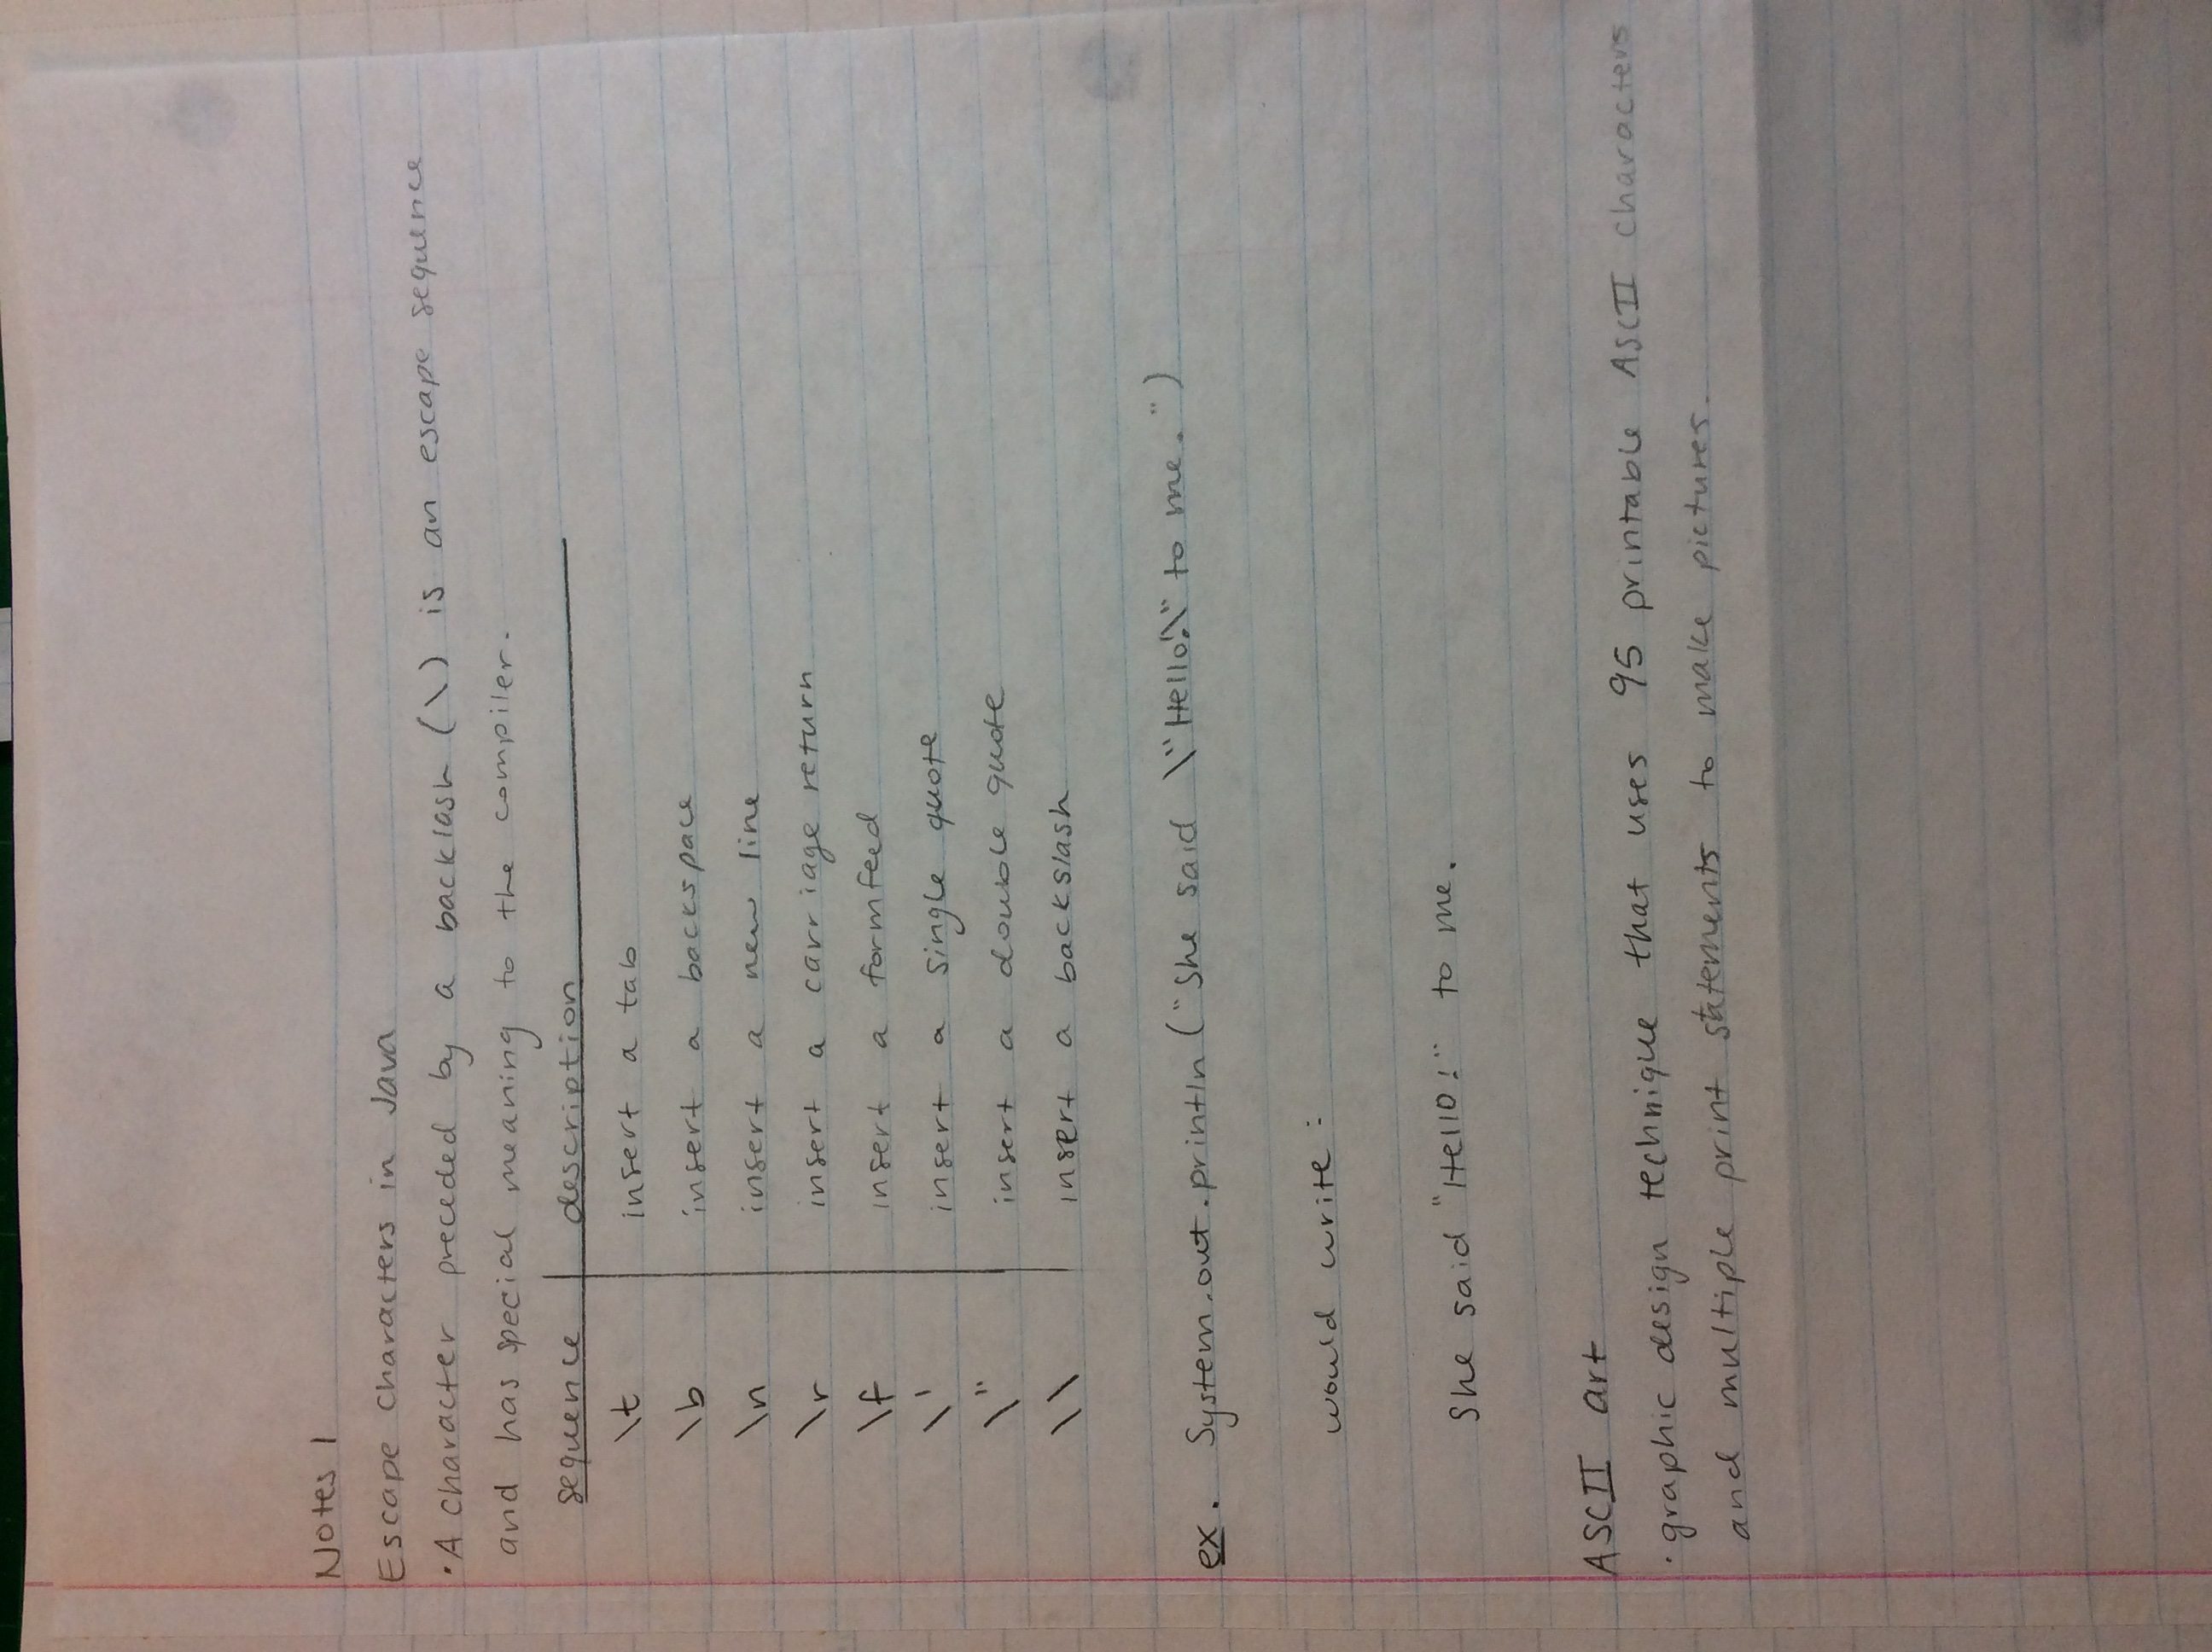 Notes 1
Escape Characters in Java
• A character preceded by a backlash (\) is an escape sequence
and has special meaning to the compiler.
sequence description
\t insert a tab
\b insert a backspace
\n insert a new line
\r insert a carriage return
\f insert a formfeed
\' insert a single quote
\" insert a double quote
\\ insert a backslash
ex. System.out.println ("She said \"Hello!\" to me.")
would write:
She said "Hello!" to me.
ASCII art
• graphic design technique that uses 95 printable ASCII characters
and multiple print statements to make pictures.